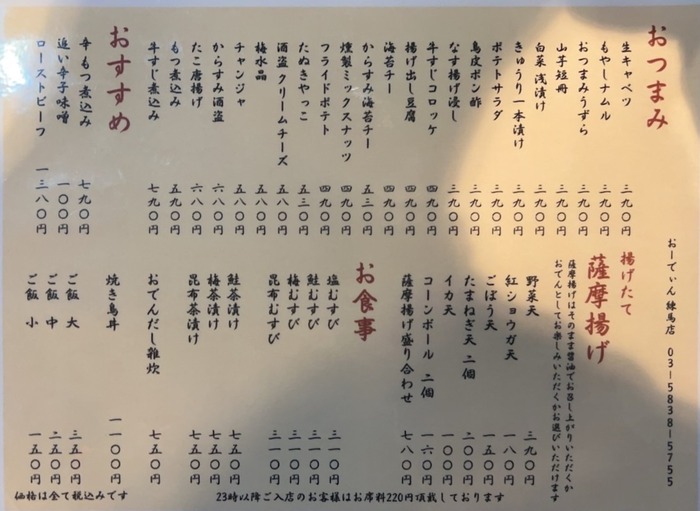 おつまみ
生キャベツ 三九〇円
もやしナムル 三九〇円
おつまみうずら 三九〇円
山芋短冊 三九〇円
白菜浅漬け 三九〇円
きゅうり一本漬け 三九〇円
ポテトサラダ 三九〇円
鳥皮ポン酢 三九〇円
なす揚げ浸し 三九〇円
牛すじコロッケ 四九〇円
揚げ出し豆腐 四九〇円
海苔チー 四九〇円
からすみ海苔チー 五三〇円
燻製ミックスナッツ 四九〇円
フライドポテト 四九〇円
たぬきやっこ 五三〇円
酒盗クリームチーズ 五八〇円
梅水晶 五八〇円
チャンジャ 五八〇円
からすみ酒盗 六八〇円
たこ唐揚げ 六八〇円
もつ煮込み 五九〇円
牛すじ煮込み 七九〇円
おすすめ
辛もつ煮込み 七九〇円
追い辛子味噌 一〇〇円
ローストビーフ 一三八〇円
おーでぃん 練馬店 03-5838-5755
揚げたて
薩摩揚げ
薩摩揚げはそのまま醤油でお召し上がりいただくか
おでんとしてお楽しみいただくかお選びいただけます
野菜天 三九〇円
紅ショウガ天 一八〇円
ごぼう天 一五〇円
たまねぎ天 二個 二〇〇円
イカ天 一〇〇円
コーンボール 二個 一六〇円
薩摩揚げ盛り合わせ 七八〇円
お食事
塩むすび 三一〇円
鮭むすび 三一〇円
梅むすび 三一〇円
昆布むすび 三一〇円
鮭茶漬け 七五〇円
梅茶漬け 七五〇円
昆布茶漬け 七五〇円
おでんだし雑炊 七五〇円
焼き鳥丼 一一〇〇円
ご飯 大 三五〇円
ご飯 中 二五〇円
ご飯 小 一五〇円
23時以降ご入店のお客様はお席料220円頂戴しております
価格は全て税込みです